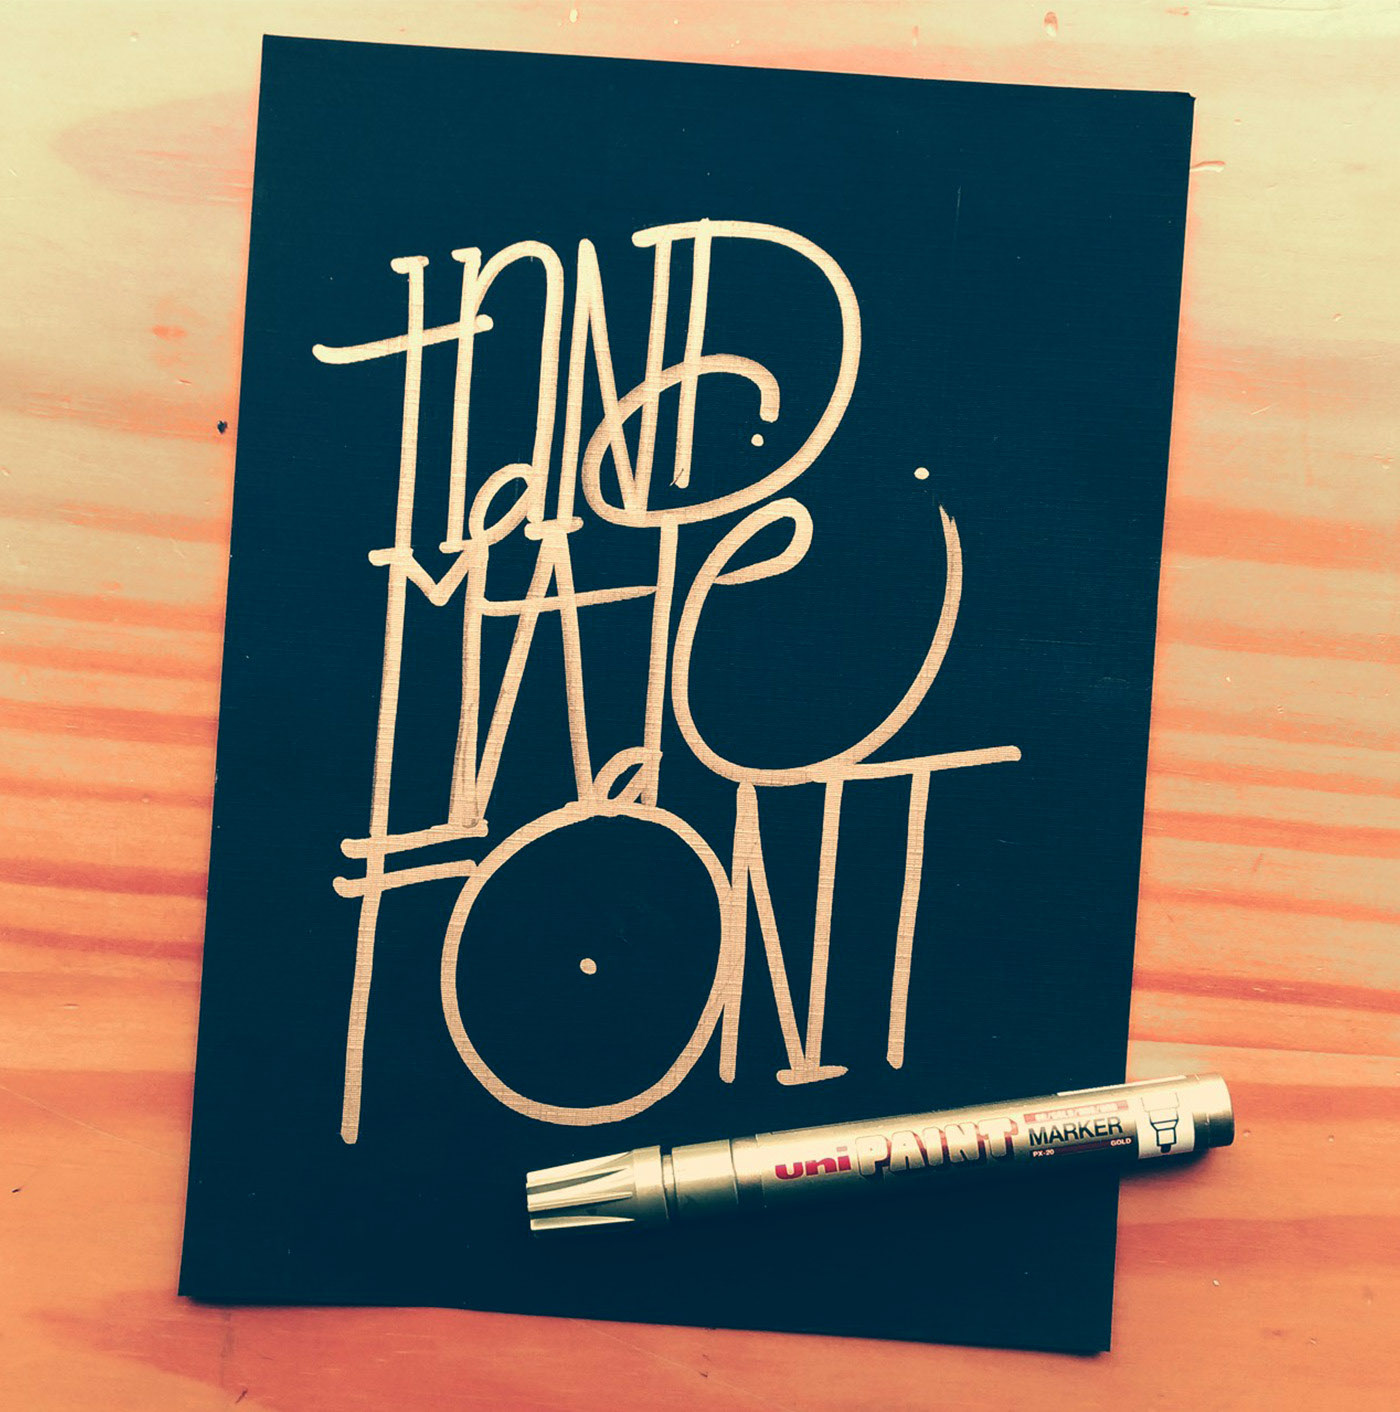 HaND
MAde
FONT
uni PAINT MARKER
PX-20 GOLD